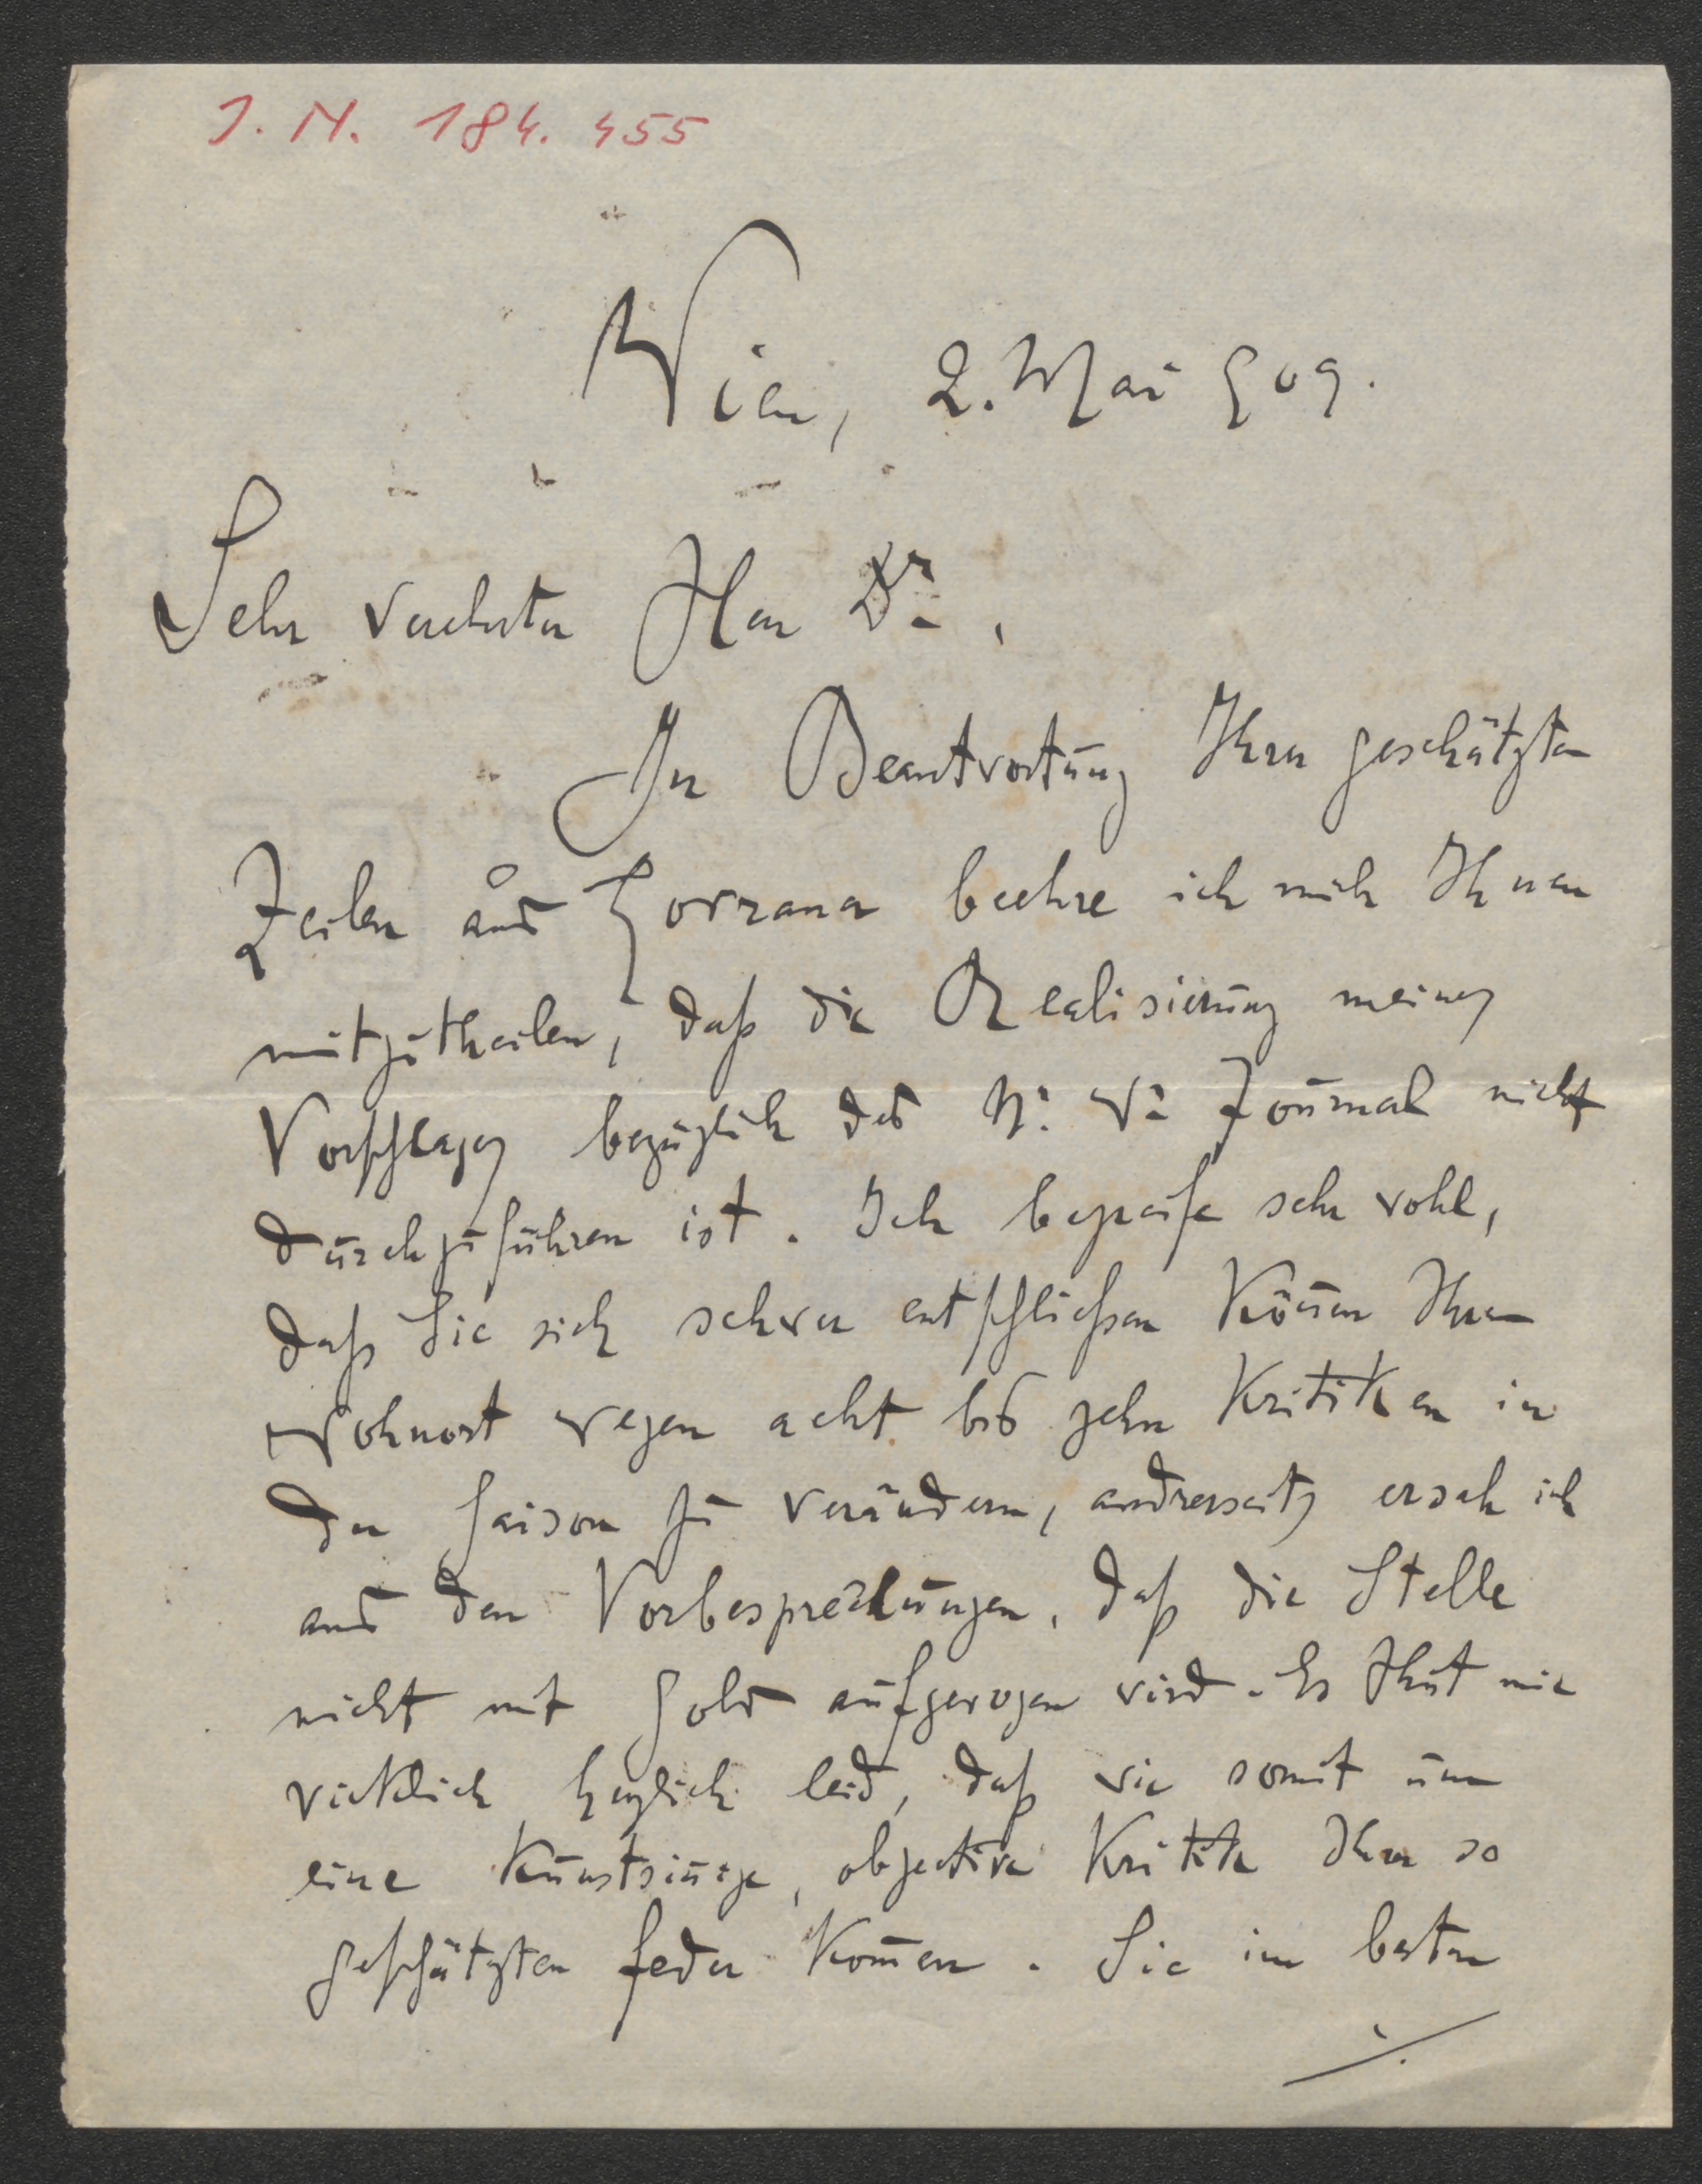 J. N. 184. 455
Wien, 2. Mai 909.
Sehr verehrter Herr Dr.,
In Beantwortung Ihrer geschätzten
Zeilen aus Lovrana beehre ich mich Ihnen
mitzutheilen, daß die Realisierung meines
Vorschlages bezüglich des N. W. Journal nicht
durchzuführen ist. Ich begreife sehr wohl,
daß Sie sich schwer entschließen kön̄en Ihren
Wohnort wegen acht bis zehn Kritiken in
der Saison zu verändern, andrerseits ersah ich
aus den Vorbesprechungen, daß die Stelle
nicht mit Gold aufgewogen wird. Es thut mir
wirklich herzlich leid, daß wir somit um
eine kunstsin̄ige, objective Kritik Ihrer so
geschätzten Feder kom̄en. Sie im besten
./.